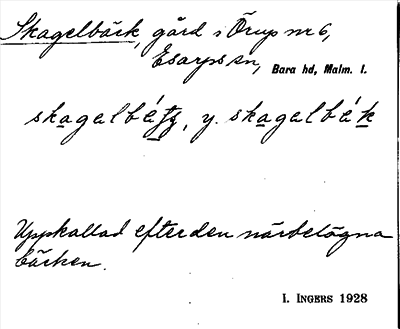 Skagelbäck, gård i Örup nr 6,
Esarps sn, Bara hd, Malm. l.
skagelbé, y. skagelbék
Uppkallad efter den närbelägna
bäcken.
I. INGERS 1928